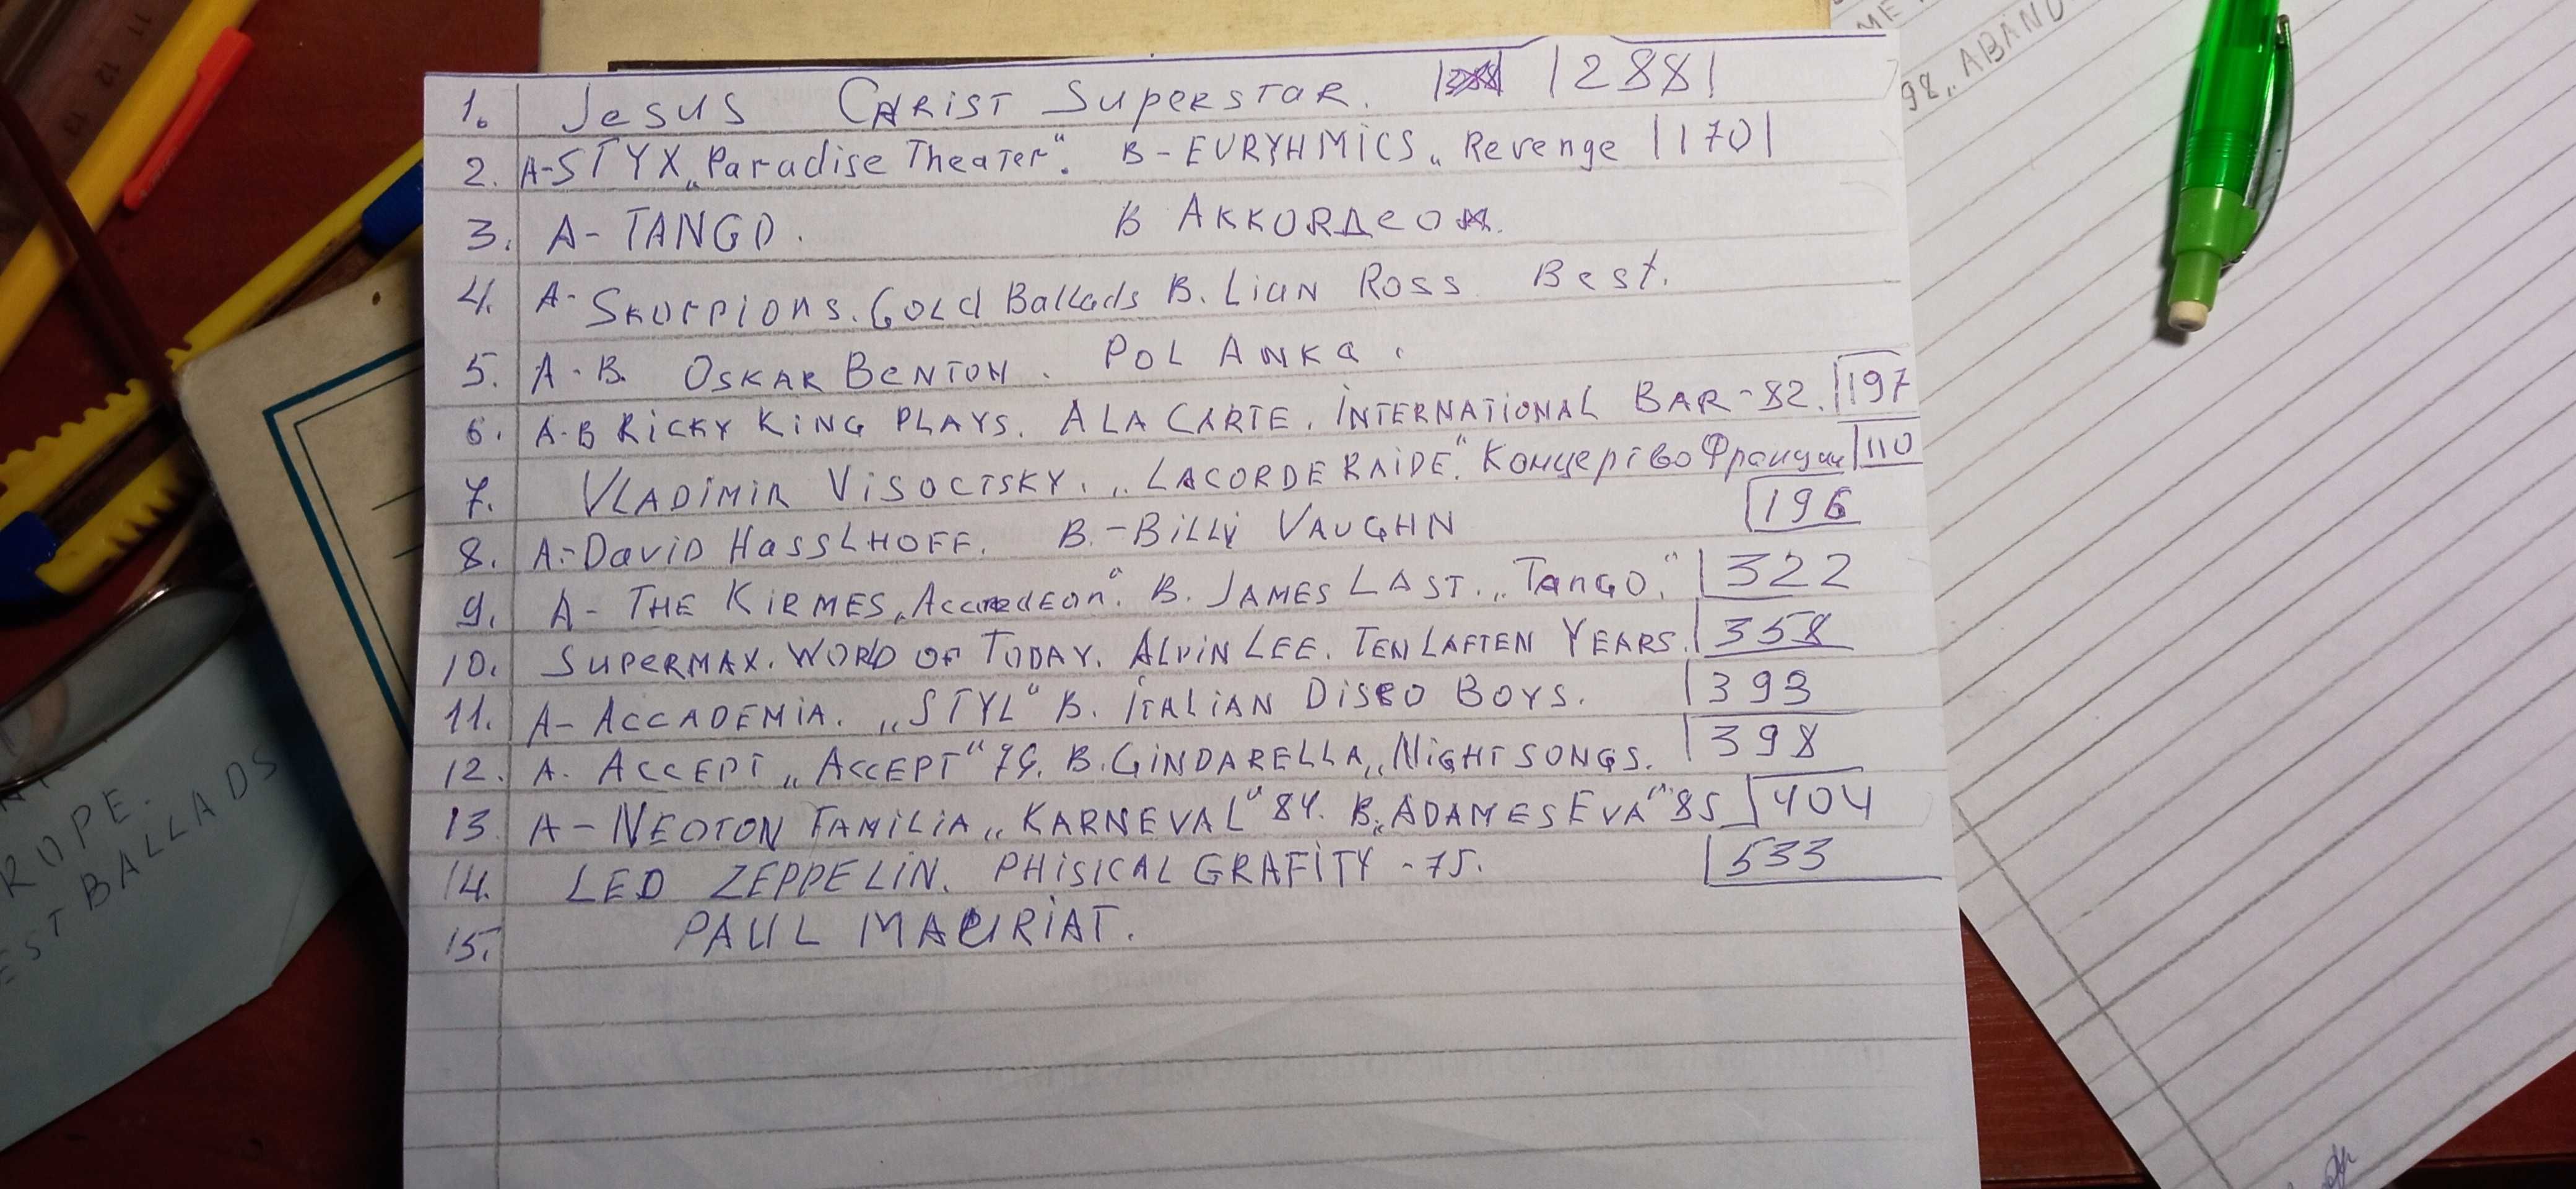 1. Jesus CHRIST SUPERSTAR. |288|
2. A-STYX „Paradise Theater". B-EURYHMICS „Revenge |170|
3. A- TANGO. B AKKORDEON.
4. A- SKORPIONS. GOLD Ballads B. LIAN ROSS Best.
5. A-B. OSKAR BENTON. POL ANKA.
6. A-B RICKY KING PLAYS. A LA CARTE. INTERNATIONAL BAR-82. 197
7. VLADIMIR VISOCTSKY. „LACORDE RAIDE". Концерт во Франции 110
8. A-DAVID HASSLHOFF. B.-BILLY VAUGHN 196
9. A- THE KIRMES „Accordeon". B. JAMES LAST. „TANGO." 322
10. SUPERMAX. WORD OF TODAY. ALVIN LEE. TEN LAFTEN YEARS. 358
11. A- ACCADEMIA. „STYL" B. ITALIAN DISCO BOYS. 393
12. A. ACCEPT „ACCEPT" 79. B. CINDARELLA „NIGHT SONGS. 398
13. A- NEOTON FAMILIA „KARNEVAL" 84. B. „ADAM ES EVA" 85 404
14. LED ZEPPELIN. PHISICAL GRAFITY -75. 533
15. PAUL MAURIAT.
ME
98,, ABAND
ROPE.
EST BALLADS
11
12
13